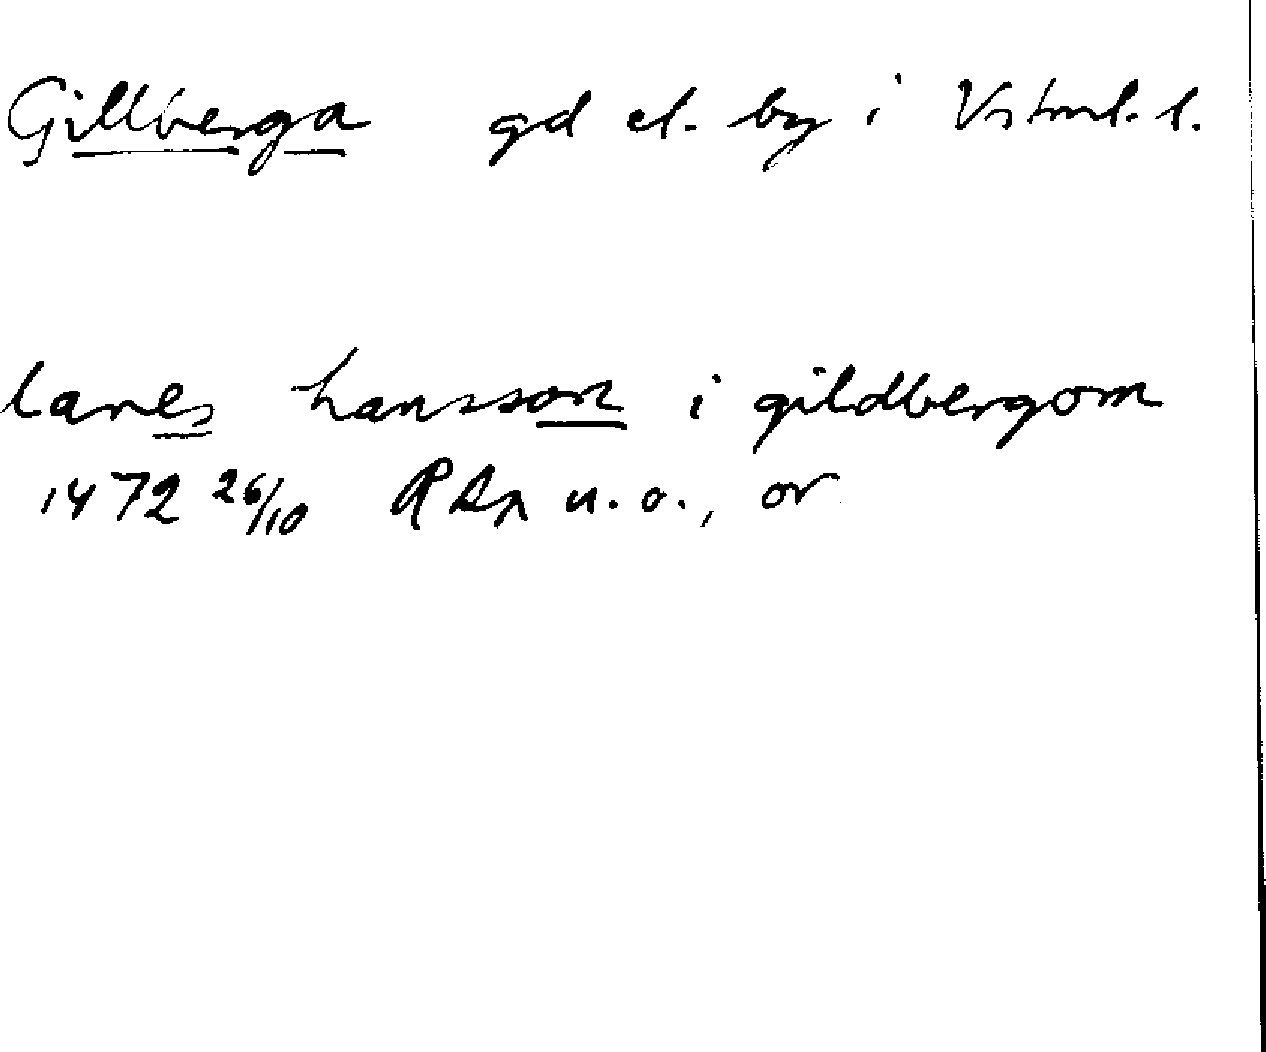 Gillberga gd el. by i Vstml. l.
lares hansson i gildbergom
1472 26/10 RAp u. o., or